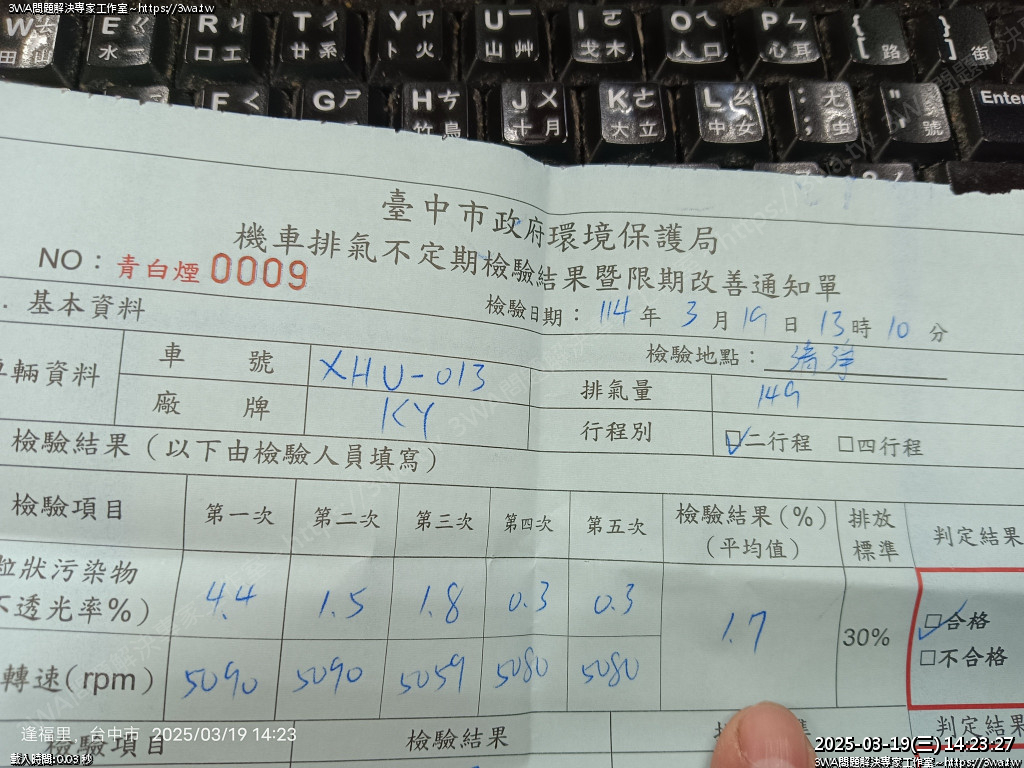 3WA問題解決專家工作室~https://3wa.tw
W 田 E 水 R ㄐ 口 工 T ㄔ 廿 系 Y ㄗ 卜 火 U ㄧ 山 艸 I ㄛ 戈 木 O ㄟ 人 口 P ㄣ 心 耳 { [ 路 } ] 街
F ㄑ G ㄕ H ㄘ 竹 鳥 J ㄨ 十 月 K ㄜ 大 立 L ㄠ 中 女 : ; 尤 虫 " ' 號 Enter
臺中市政府環境保護局
機車排氣不定期檢驗結果暨限期改善通知單
NO：青白煙 0009
. 基本資料
檢驗日期：114 年 3 月 19 日 13 時 10 分
檢驗地點：
車輛資料
車 號 XHU-013
排氣量 149
廠 牌 KY
行程別 ☑二行程 □四行程
檢驗結果（以下由檢驗人員填寫）
檢驗項目 第一次 第二次 第三次 第四次 第五次 檢驗結果（%）（平均值） 排放標準 判定結果
粒狀污染物
不透光率%） 4.4 1.5 1.8 0.3 0.3 1.7 30% ☑合格
□不合格
轉速（rpm） 5090 5090 5059 5080 5080
檢驗項目 檢驗結果 準 判定結果
逢福里﹑台中市 2025/03/19 14:23
2025-03-19(三) 14:23:27
載入時間:0.03 秒
3WA問題解決專家工作室~https://3wa.tw